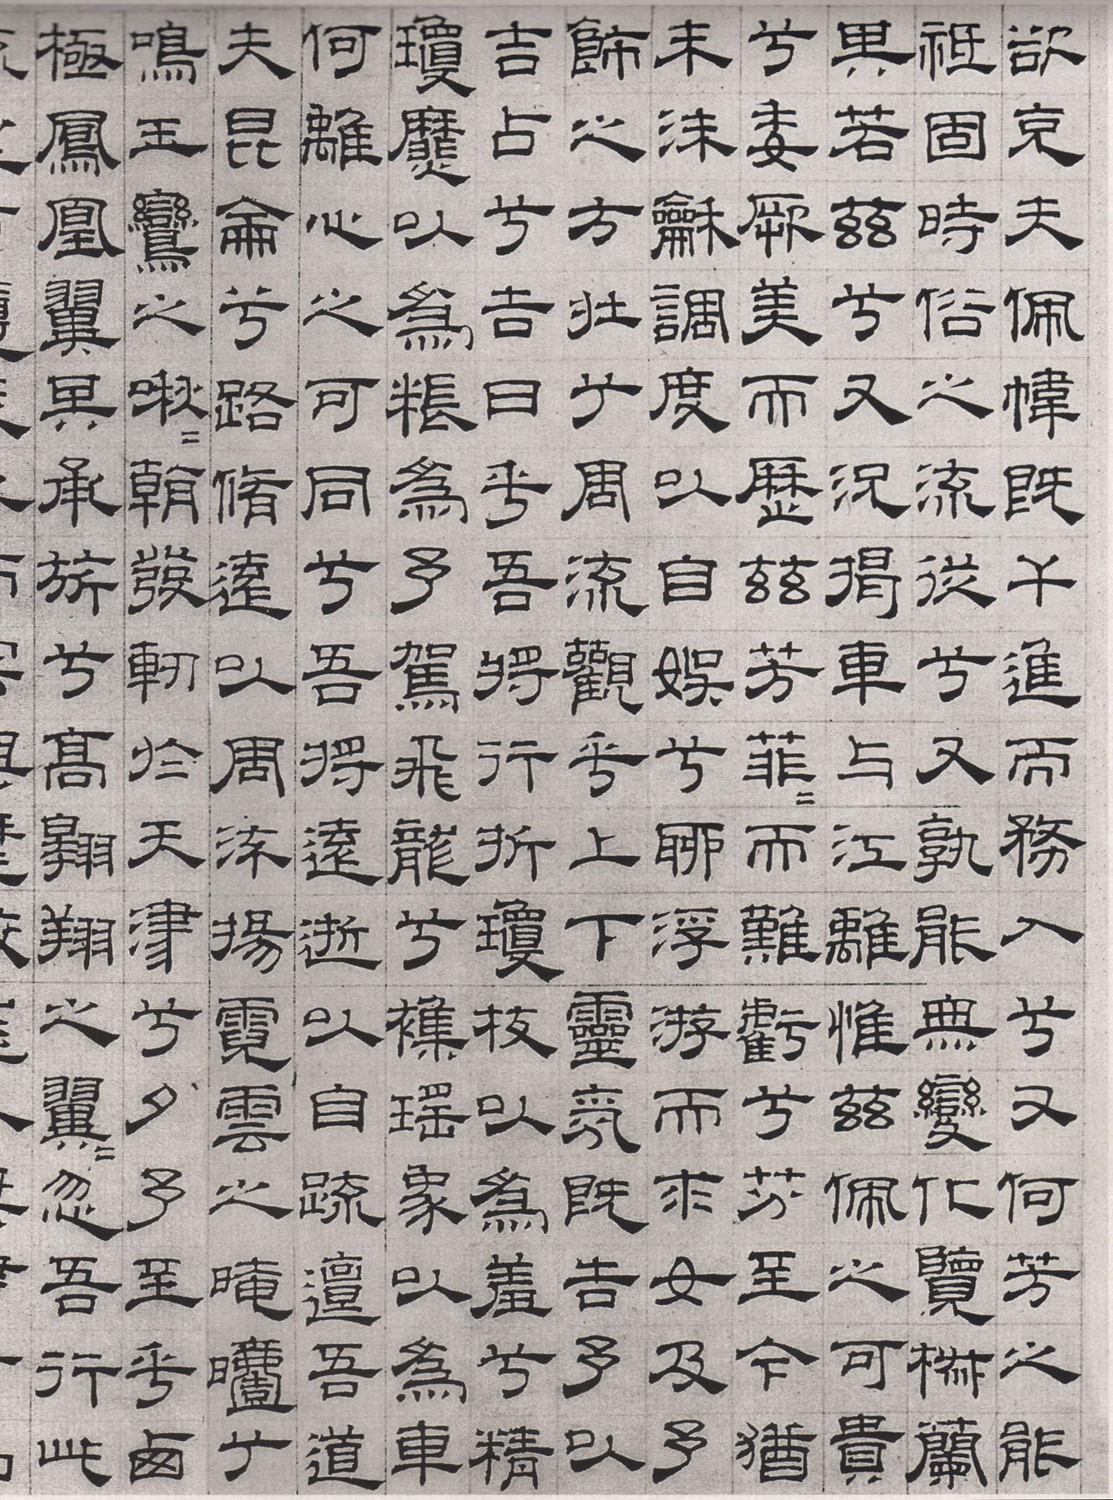 欲充夫佩幃既干進而務入兮又何芳之能
祗固時俗之流從兮又孰能無變化覽椒蘭
其若茲兮又況揭車与江離惟茲佩之可貴
兮委厥美而歷茲芳菲=而難虧兮芬至今猶
未沬龢調度以自娛兮聊浮游而求女及予
飾之方壯兮周流觀乎上下靈氛既告予以
吉占兮吉日乎吾將行折瓊枝以為羞兮精
瓊爢以為粻為予駕飛龍兮襍瑤象以為車
何離心之可同兮吾將遠逝以自疏邅吾道
夫昆侖兮路脩遠以周流揚霓雲之晻兮
鳴玉鸞之啾=朝發軔於天津兮夕予至乎西
極鳳凰翼其承旂兮高翱翔之翼=忽吾行此